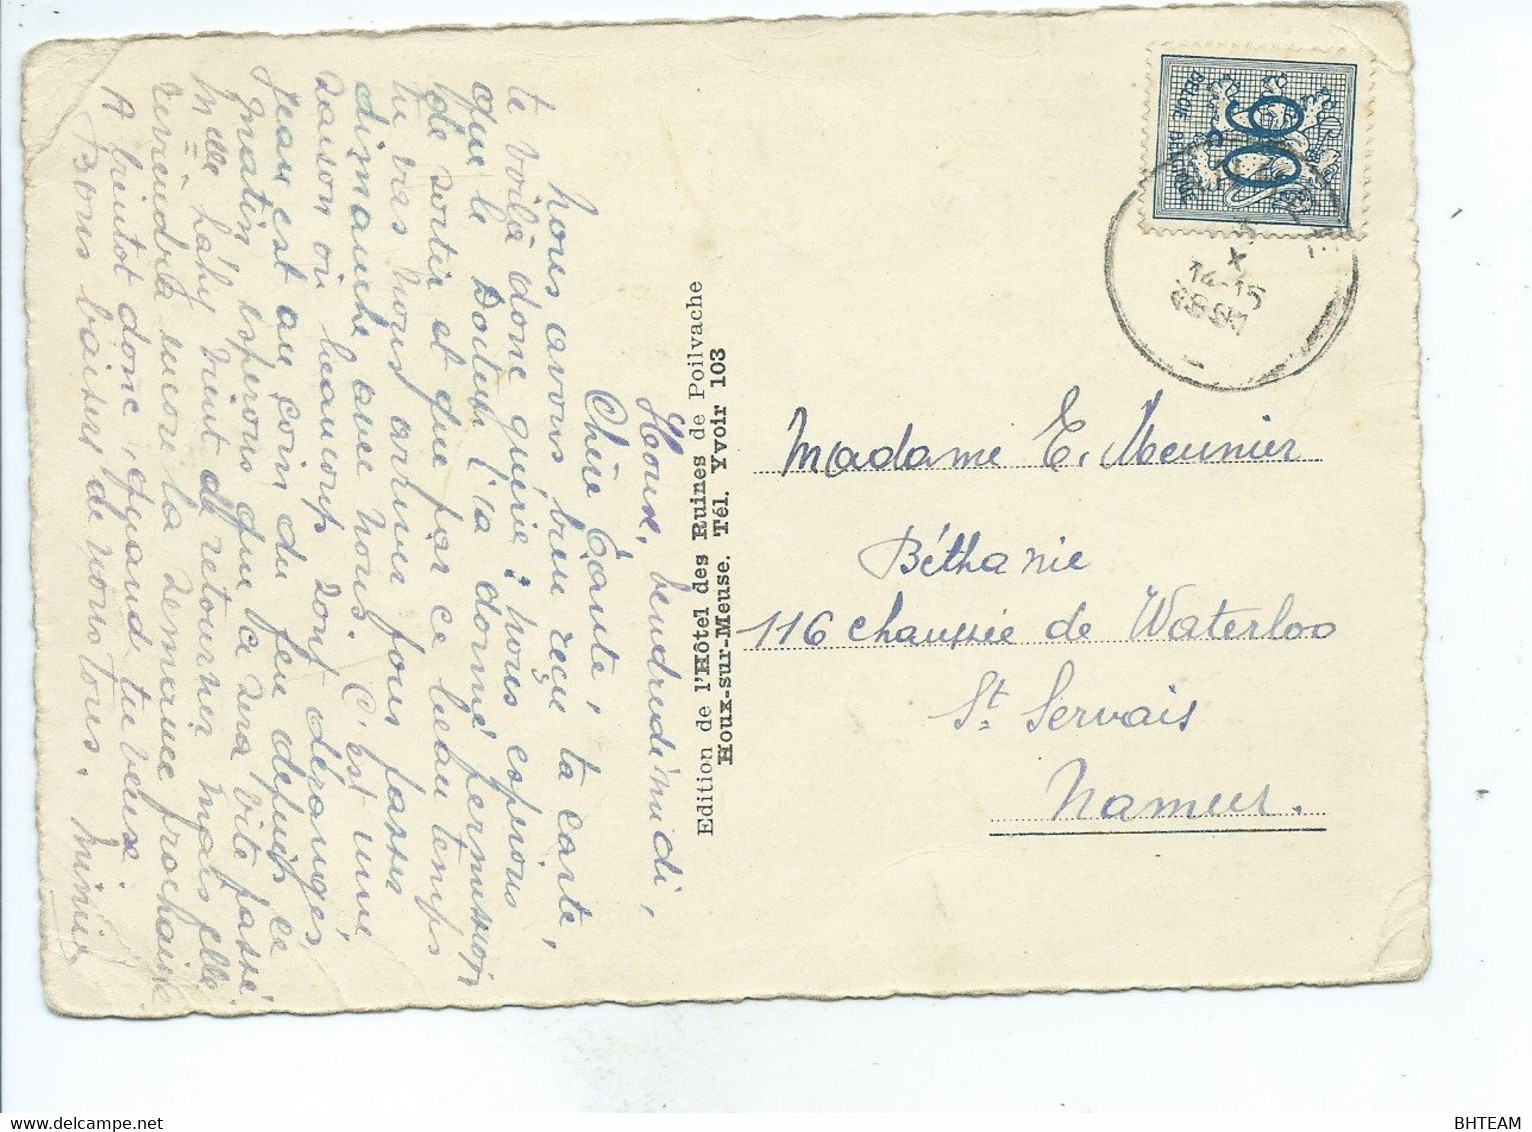 Houx, vendredi midi,
Chère Tante,
Nous avons bien reçu ta carte,
te voilà donc guérie : nous espérons
que le Docteur t'a donné permission
de sortir et que par ce beau temps
tu vas nous arriver pour passer
dimanche avec nous. C'est une
saison où beaucoup sont dérangés,
Jean est au coin du feu depuis ce
matin espérons que ce sera vite passé.
Melle Lahy vient de retourner mais elle
reviendra encore la semaine prochaine
A bientôt donc, quand tu veux.
Bons baisers de nous tous. Mimie
Edition de l'Hôtel des Ruines de Poilvache
Houx-sur-Meuse. Tél. Yvoir 103
BELGIE BELGIQUE
80
X
14-15
Madame E. Meunier
Béthanie
116 chaussée de Waterloo
St Servais
Namur.
BHTEAM